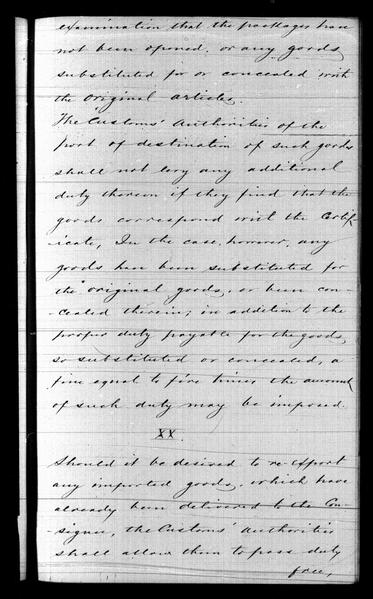 examination that the packages have
not been opened, or any goods
substituted for or concealed with
the original articles.
The Customs' Authorities of the
port of destination of such goods
shall not levy any additional
duty thereon if they find that the
goods correspond with the Certif-
icate, In the case, however, any
goods have been substituted for
the original goods, or been con-
-cealed therein; in addition to the
proper duty payable for the goods,
so substituted or concealed, a
fine equal to five times the amount
of such duty may be imposed.
XX.
Should it be desired to re-export
any imported goods, which have
already been delivered to the Con-
signee, the Customs' Authorities
shall allow them to pass duty
free,